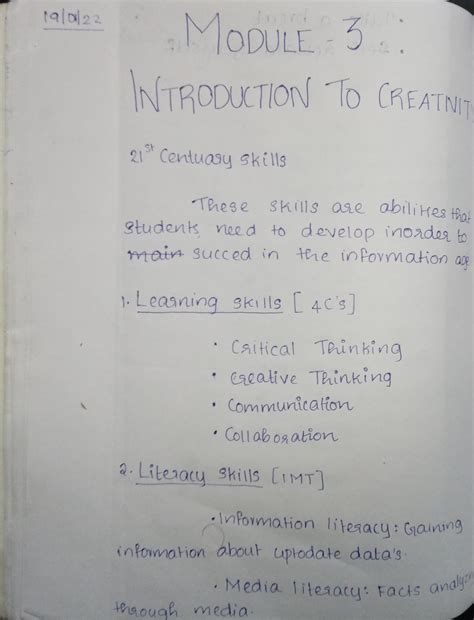 19/0/22
MODULE - 3 :
INTRODUCTION TO CREATNIT
21st Centuary skills
These skills are abilities that
students need to develop inorder to
main succed in the information age
1. Learning skills [ 4C's]
• Critical Thinking
• Creative Thinking
• Communication
• Collaboration
2. Literacy skills [IMT]
• Information literacy: Gaining
information about uptodate data's.
• Media literacy: Facts analy
through media.